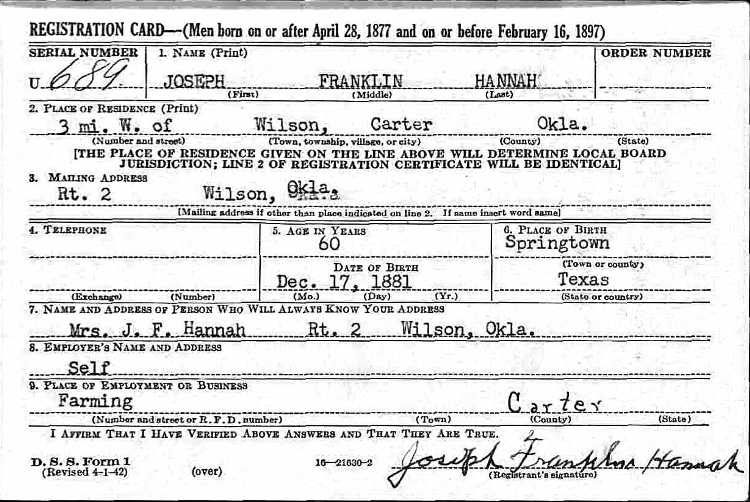 REGISTRATION CARD—(Men born on or after April 28, 1877 and on or before February 16, 1897)
SERIAL NUMBER 1. NAME (Print) ORDER NUMBER
U 689 JOSEPH FRANKLIN HANNAH
(First) (Middle) (Last)
2. PLACE OF RESIDENCE (Print)
3 mi. W. of Wilson, Carter Okla.
(Number and street) (Town, township, village, or city) (County) (State)
[THE PLACE OF RESIDENCE GIVEN ON THE LINE ABOVE WILL DETERMINE LOCAL BOARD
JURISDICTION; LINE 2 OF REGISTRATION CERTIFICATE WILL BE IDENTICAL]
3. MAILING ADDRESS
Rt. 2 Wilson, Okla.
[Mailing address if other than place indicated on line 2. If same insert word same]
4. TELEPHONE 5. AGE IN YEARS 6. PLACE OF BIRTH
60 Springtown
DATE OF BIRTH (Town or county)
Dec. 17, 1881 Texas
(Exchange) (Number) (Mo.) (Day) (Yr.) (State or country)
7. NAME AND ADDRESS OF PERSON WHO WILL ALWAYS KNOW YOUR ADDRESS
Mrs. J. F. Hannah Rt. 2 Wilson, Okla.
8. EMPLOYER'S NAME AND ADDRESS
Self
9. PLACE OF EMPLOYMENT OR BUSINESS
Farming Carter
(Number and street or R. F. D. number) (Town) (County) (State)
I AFFIRM THAT I HAVE VERIFIED ABOVE ANSWERS AND THAT THEY ARE TRUE.
D. S. S. Form 1
(Revised 4-1-42) (over) 16—21630-2 Joseph Franklin Hannah
(Registrant's signature)